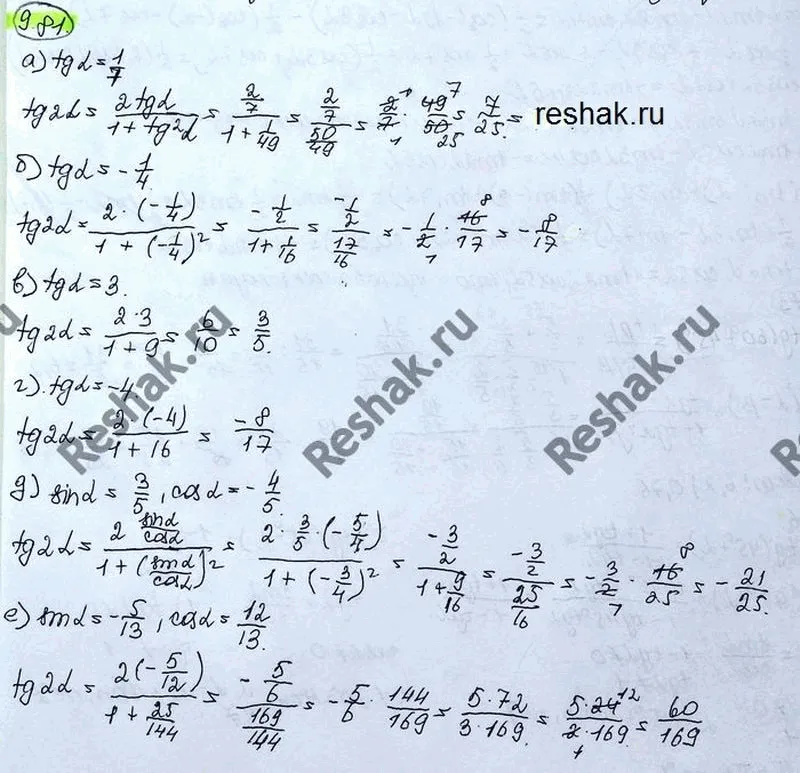 981.
а) tgα = 1/7
tg2α = 2tgα/(1 + tg²α) = (2/7)/(1 + 1/49) = (2/7)/(50/49) = 2/7 · 49/50 = 7/25 = reshak.ru
б) tgα = -1/4
tg2α = 2·(-1/4)/(1 + (-1/4)²) = (-1/2)/(1 + 1/16) = (-1/2)/(17/16) = -1/2 · 16/17 = -8/17
в) tgα = 3.
tg2α = 2·3/(1+9) = 6/10 = 3/5.
г). tgα = -4.
tg2α = 2·(-4)/(1+16) = -8/17
д) sinα = 3/5, cosα = -4/5.
tg2α = 2 (sinα/cosα)/(1 + (sinα/cosα)²) = 2·3/5·(-5/4)/(1 + (-3/4)²) = (-3/2)/(1 + 9/16) = (-3/2)/(25/16) = -3/2 · 16/25 = -21/25.
е) sinα = -5/13, cosα = 12/13.
tg2α = 2(-5/12)/(1 + 25/144) = (-5/6)/(169/144) = -5/6 · 144/169 = 5·72/(3·169) = 5·24/(2·169) = 60/169
Reshak.ru
Reshak.ru
Reshak.ru